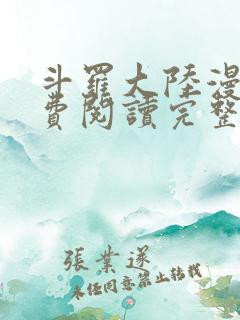 斗羅大陸漫
費閱讀完整
張業遂
未經同意禁止轉載